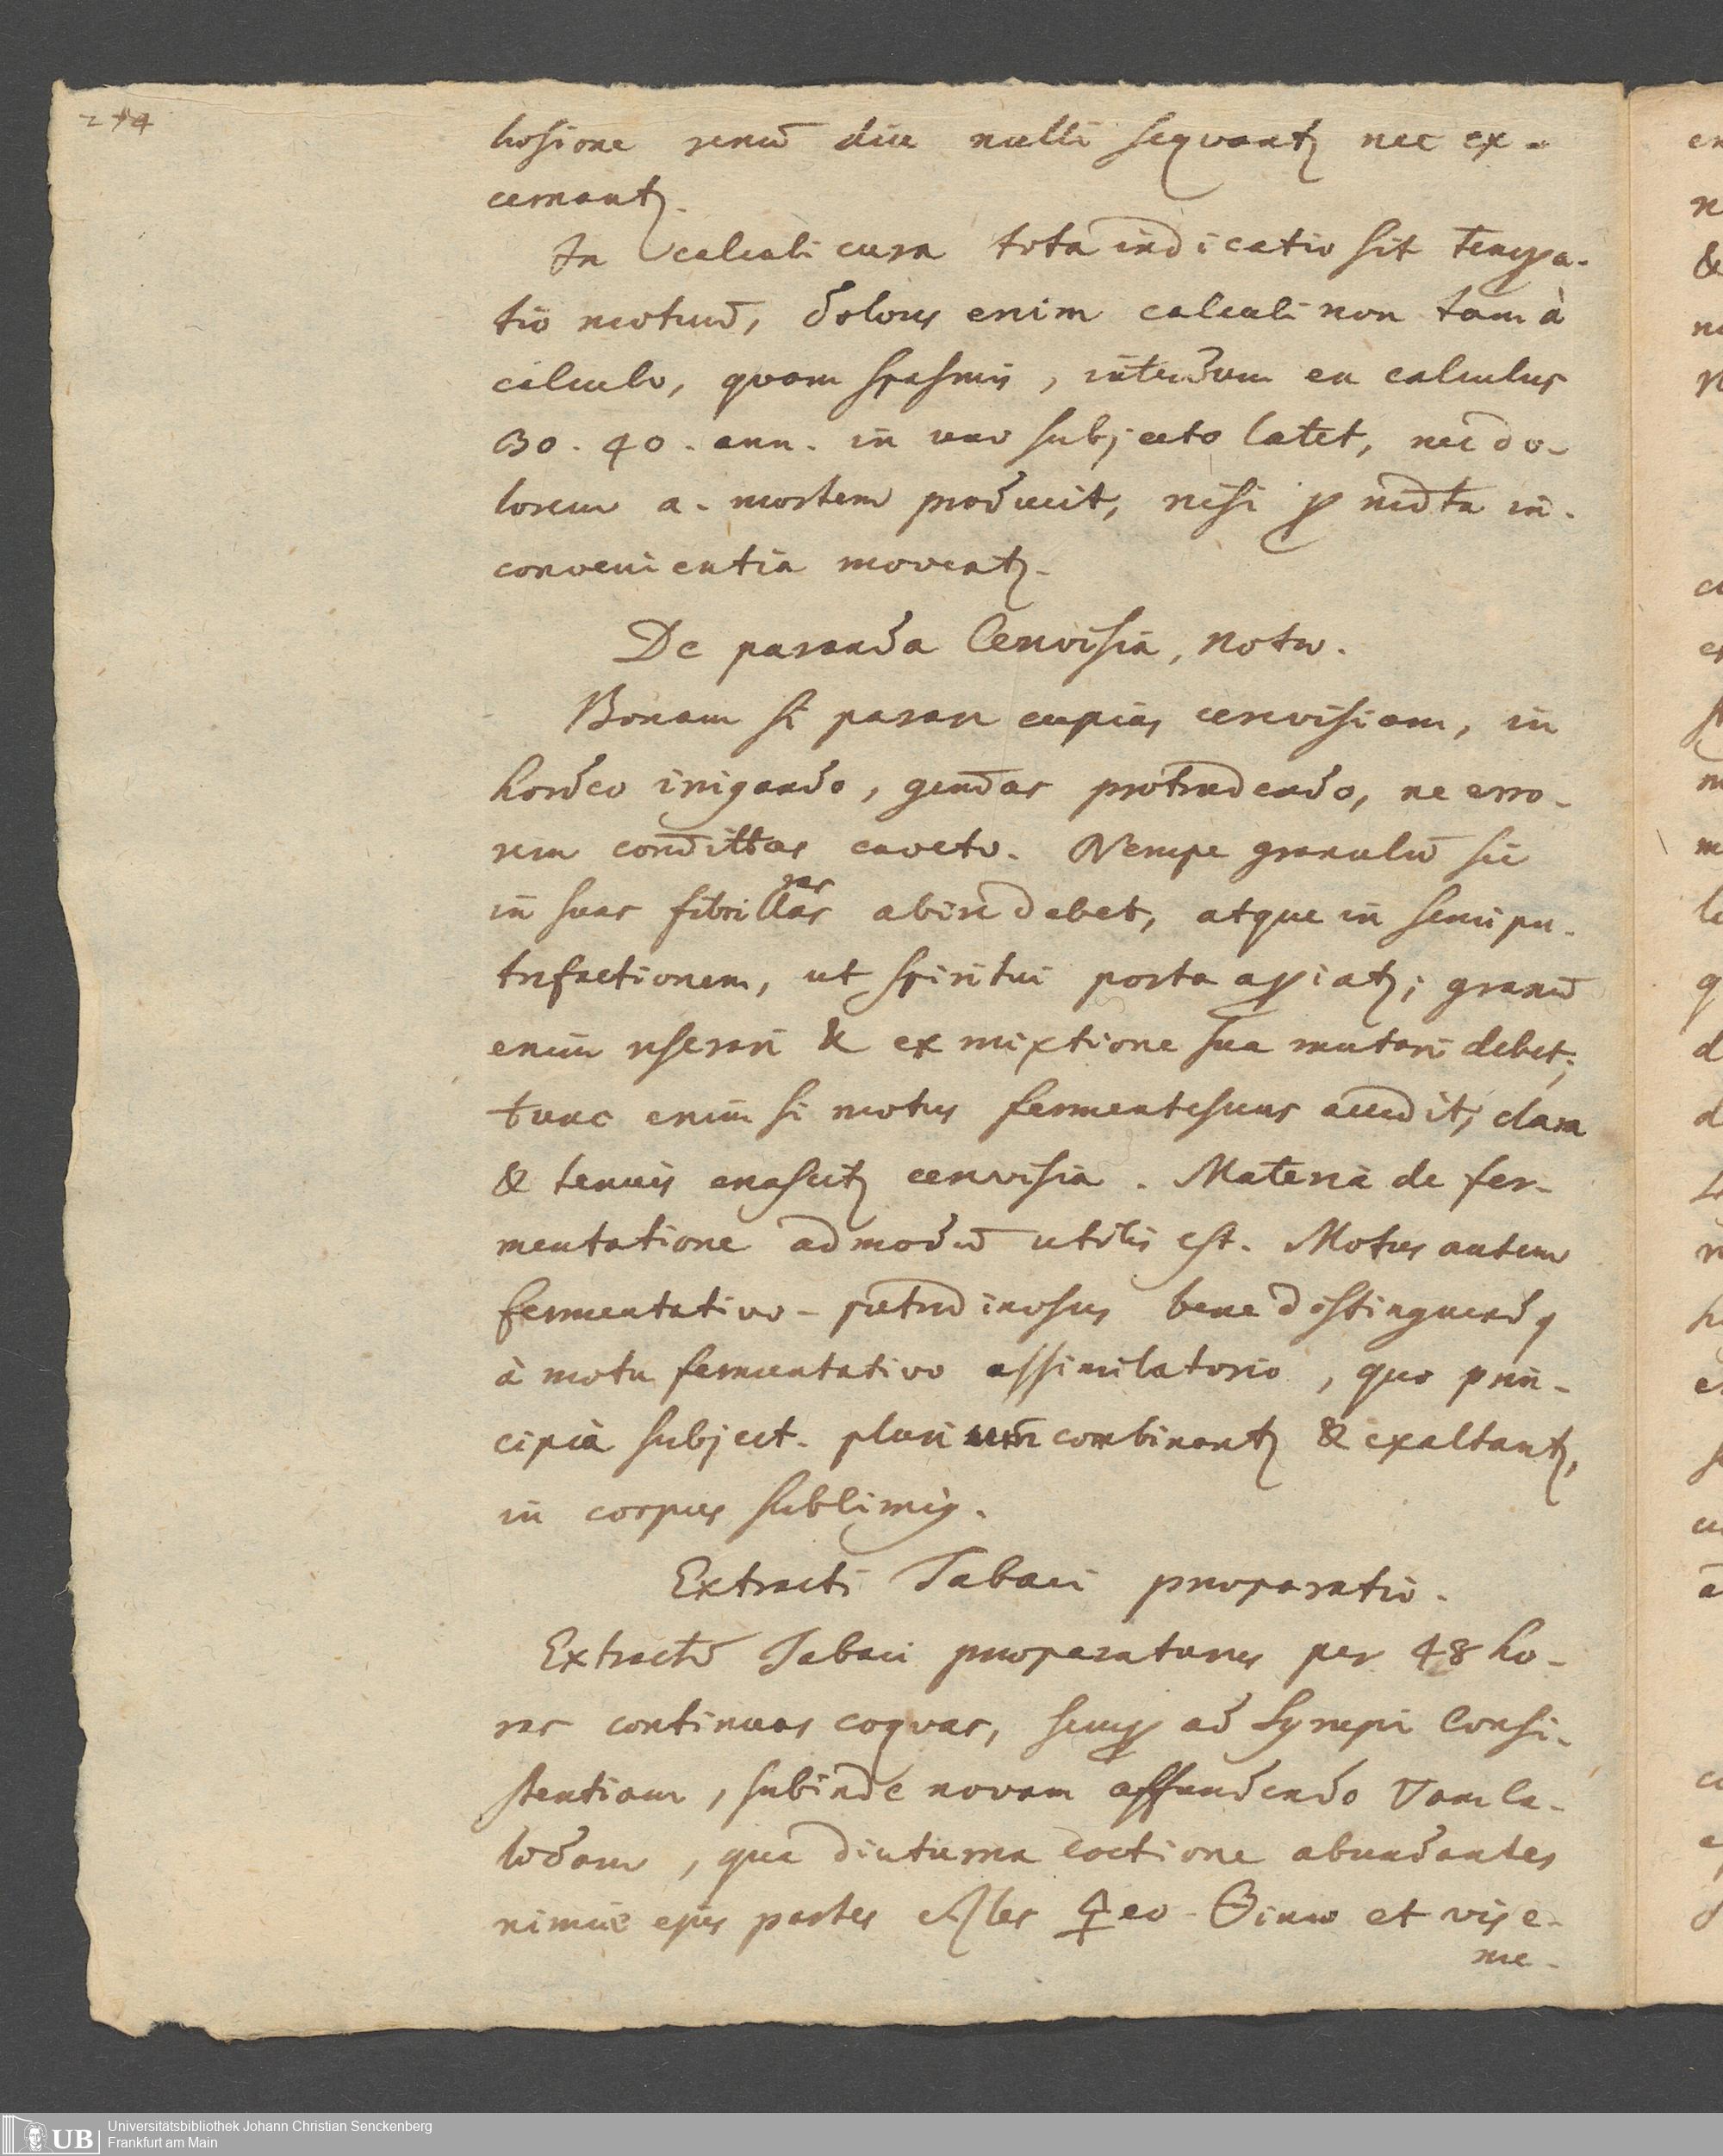 294
hosione renū diu nulli seqvantꝫ nec ex-
cernantꝫ.
In calculi cura tota indicatio sit tempa-
tio motuū, dolores enim calculi non tam à
calculo, qvam spasmis, interdum en calculus
30. 40. ann. in uno subjecto latet, nec do-
lorem a. mortem producit, nisi ꝑ in-
convenientia moveatꝫ.
De paranda Cervisia, nota.
Bonam si parare cupias cervisiam, in
hordeo irrigando, protrudendo, ne erro-
rem caveto. Nempe granulū sic
in suas fibrillas ras abire debet, atque in semipu-
trefactionem, ut spiritui porta aꝑiatꝫ; granū
enim reserari & ex mixtione sua mutari debet;
tunc enim si motus fermentescens accedit, clara
& tenuis enascitꝫ cervisia. Materia de fer-
mentatione admodū utilis est. Motus autem
fermentativo-putredinosus bene distinguendꝰ
à motu fermentativo assimilatorio, quo prin-
cipia subject. plurimum combinantꝫ & exaltantꝫ,
in corpus sublimiꝰ.
Extracti Tabaci praeparatio.
Extractū Tabaci praeparaturus per 48 ho-
ras continuas coqvas, semꝑ ad Syrupi Consi-
stentiam, subinde novam affundendo ca-
lidam, qua diuturna coctione abundantes
nimiū ejus partes eo- et vis e-
me-
Universitätsbibliothek Johann Christian Senckenberg
Frankfurt am Main
UB